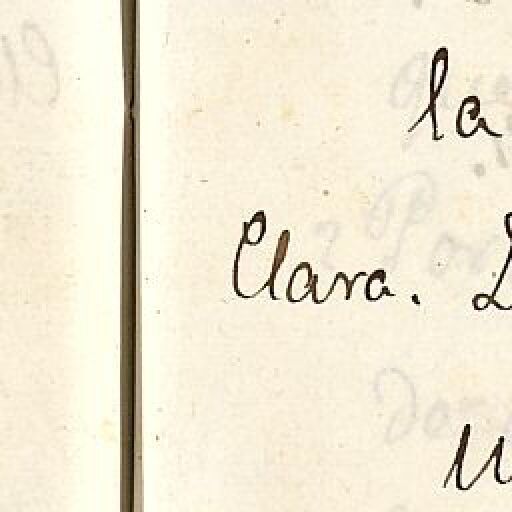 la
Clara.